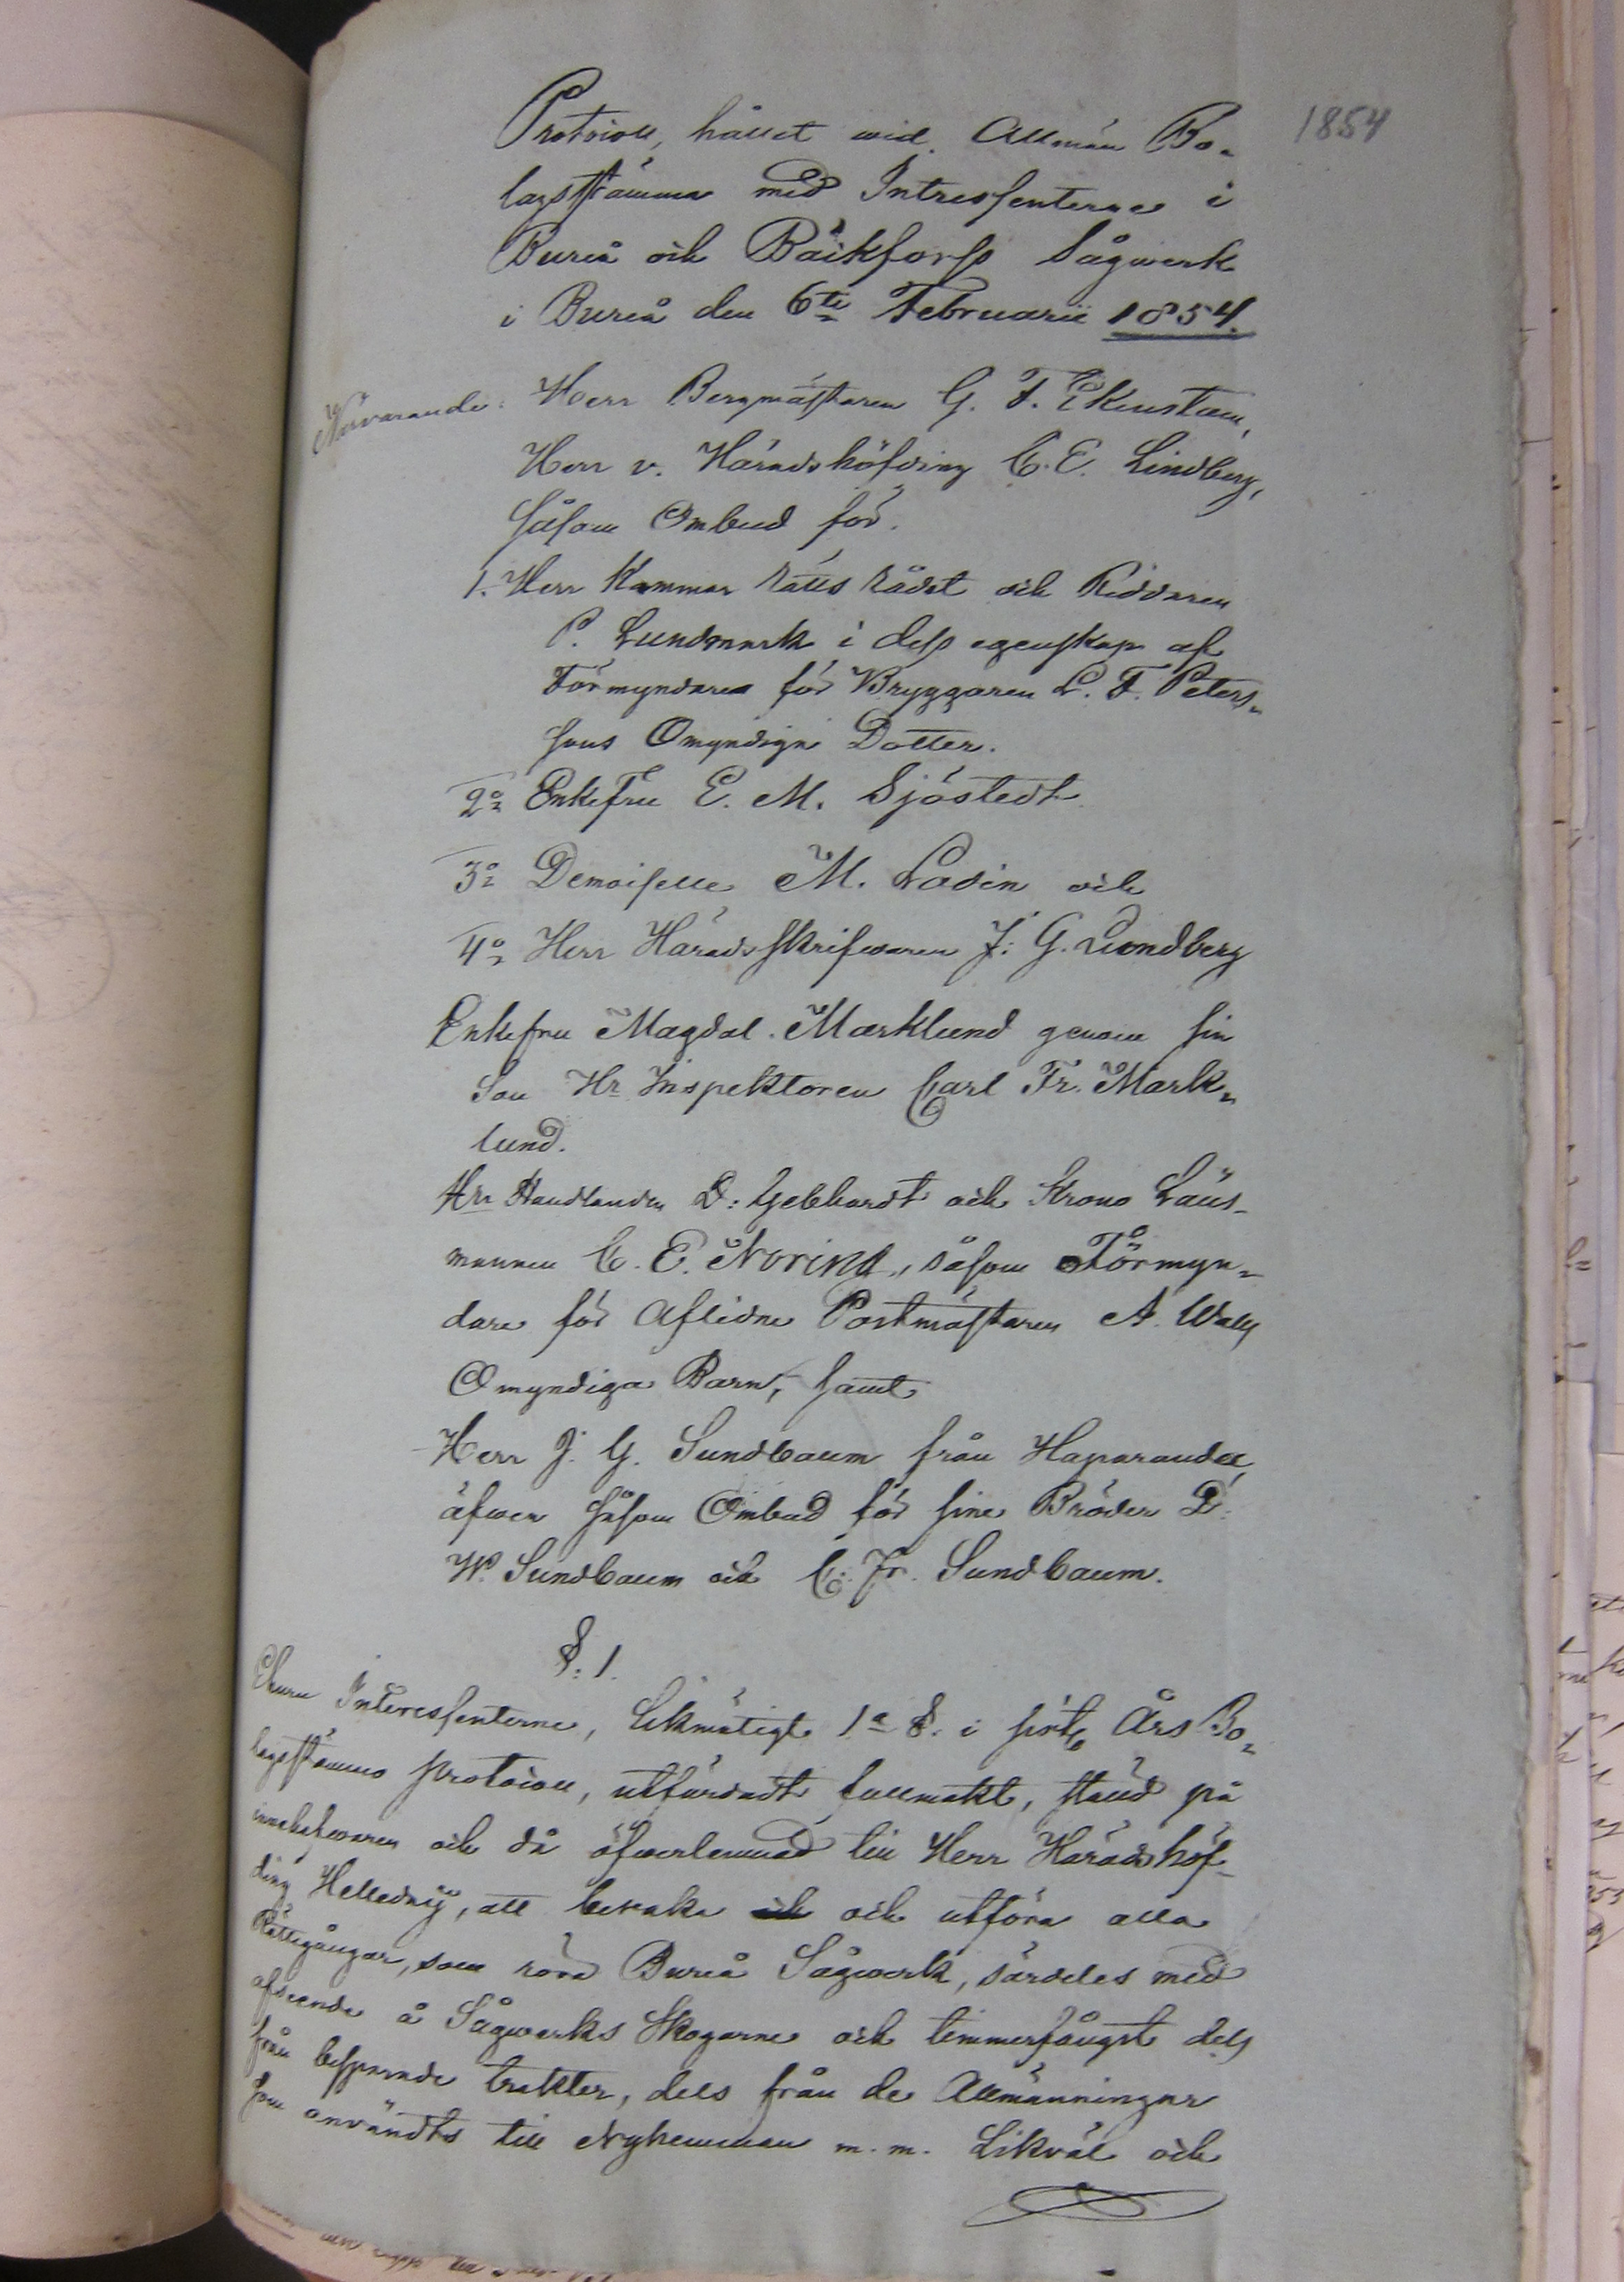 1854
Protocoll, hållet wid Allmän Bo-
lagsstämma med Intressenterne i
Bureå och Bäckforss Sågwerk
i Bureå den 6te Februarii 1854.
Närvarande: Herr Bergmästaren G. F. Ekenstam,
Herr v. Häradshöfding C. E. Lindberg,
såsom Ombud för.
1. Herr Kammar rätts rådet och Riddaren
P. Lundmark i dess egenskap af
Förmyndare för Bryggaren L. F. Peters-
sons Omyndige Dotter.
2o Enkefru E. M. Sjöstedt
3o Demoiselle M. Ladin och
4o Herr Häradsskrifwaren J: G. Lundberg
Enkefru Magdal. Marklund genom sin
Son Hr Inspektoren Carl Fr. Mark-
lund.
Hr Handlanden D: Gebhardt och Krono Läns-
mannen C. E. Norind, såsom Förmyn-
dare för Aflidne Postmästaren A. Walls
Omyndiga Barn, samt
Herr J. G. Sundbaum från Haparanda,
äfwen såsom Ombud för sine Bröder D:
W. Sundbaum och C: Fr. Sundbaum.
§: 1.
Ehuru Interessenterne, likmätigt 1a §: i sist Års Bo-
lagsstämmo protocoll, utfärdadt fullmakt, ställd på
innehafwaren och då öfwerlemnad till Herr Häradshöf-
ding Hellednij, att bevaka och utföra alla
Rättegångar, som röra Bureå Sågwerk, särdeles med
afseende å Sågwerks Skogarne och timmerfångst dels
från besparade trakter, dels från de Allmänningar
som användts till Nyhemman m. m. Likväl och